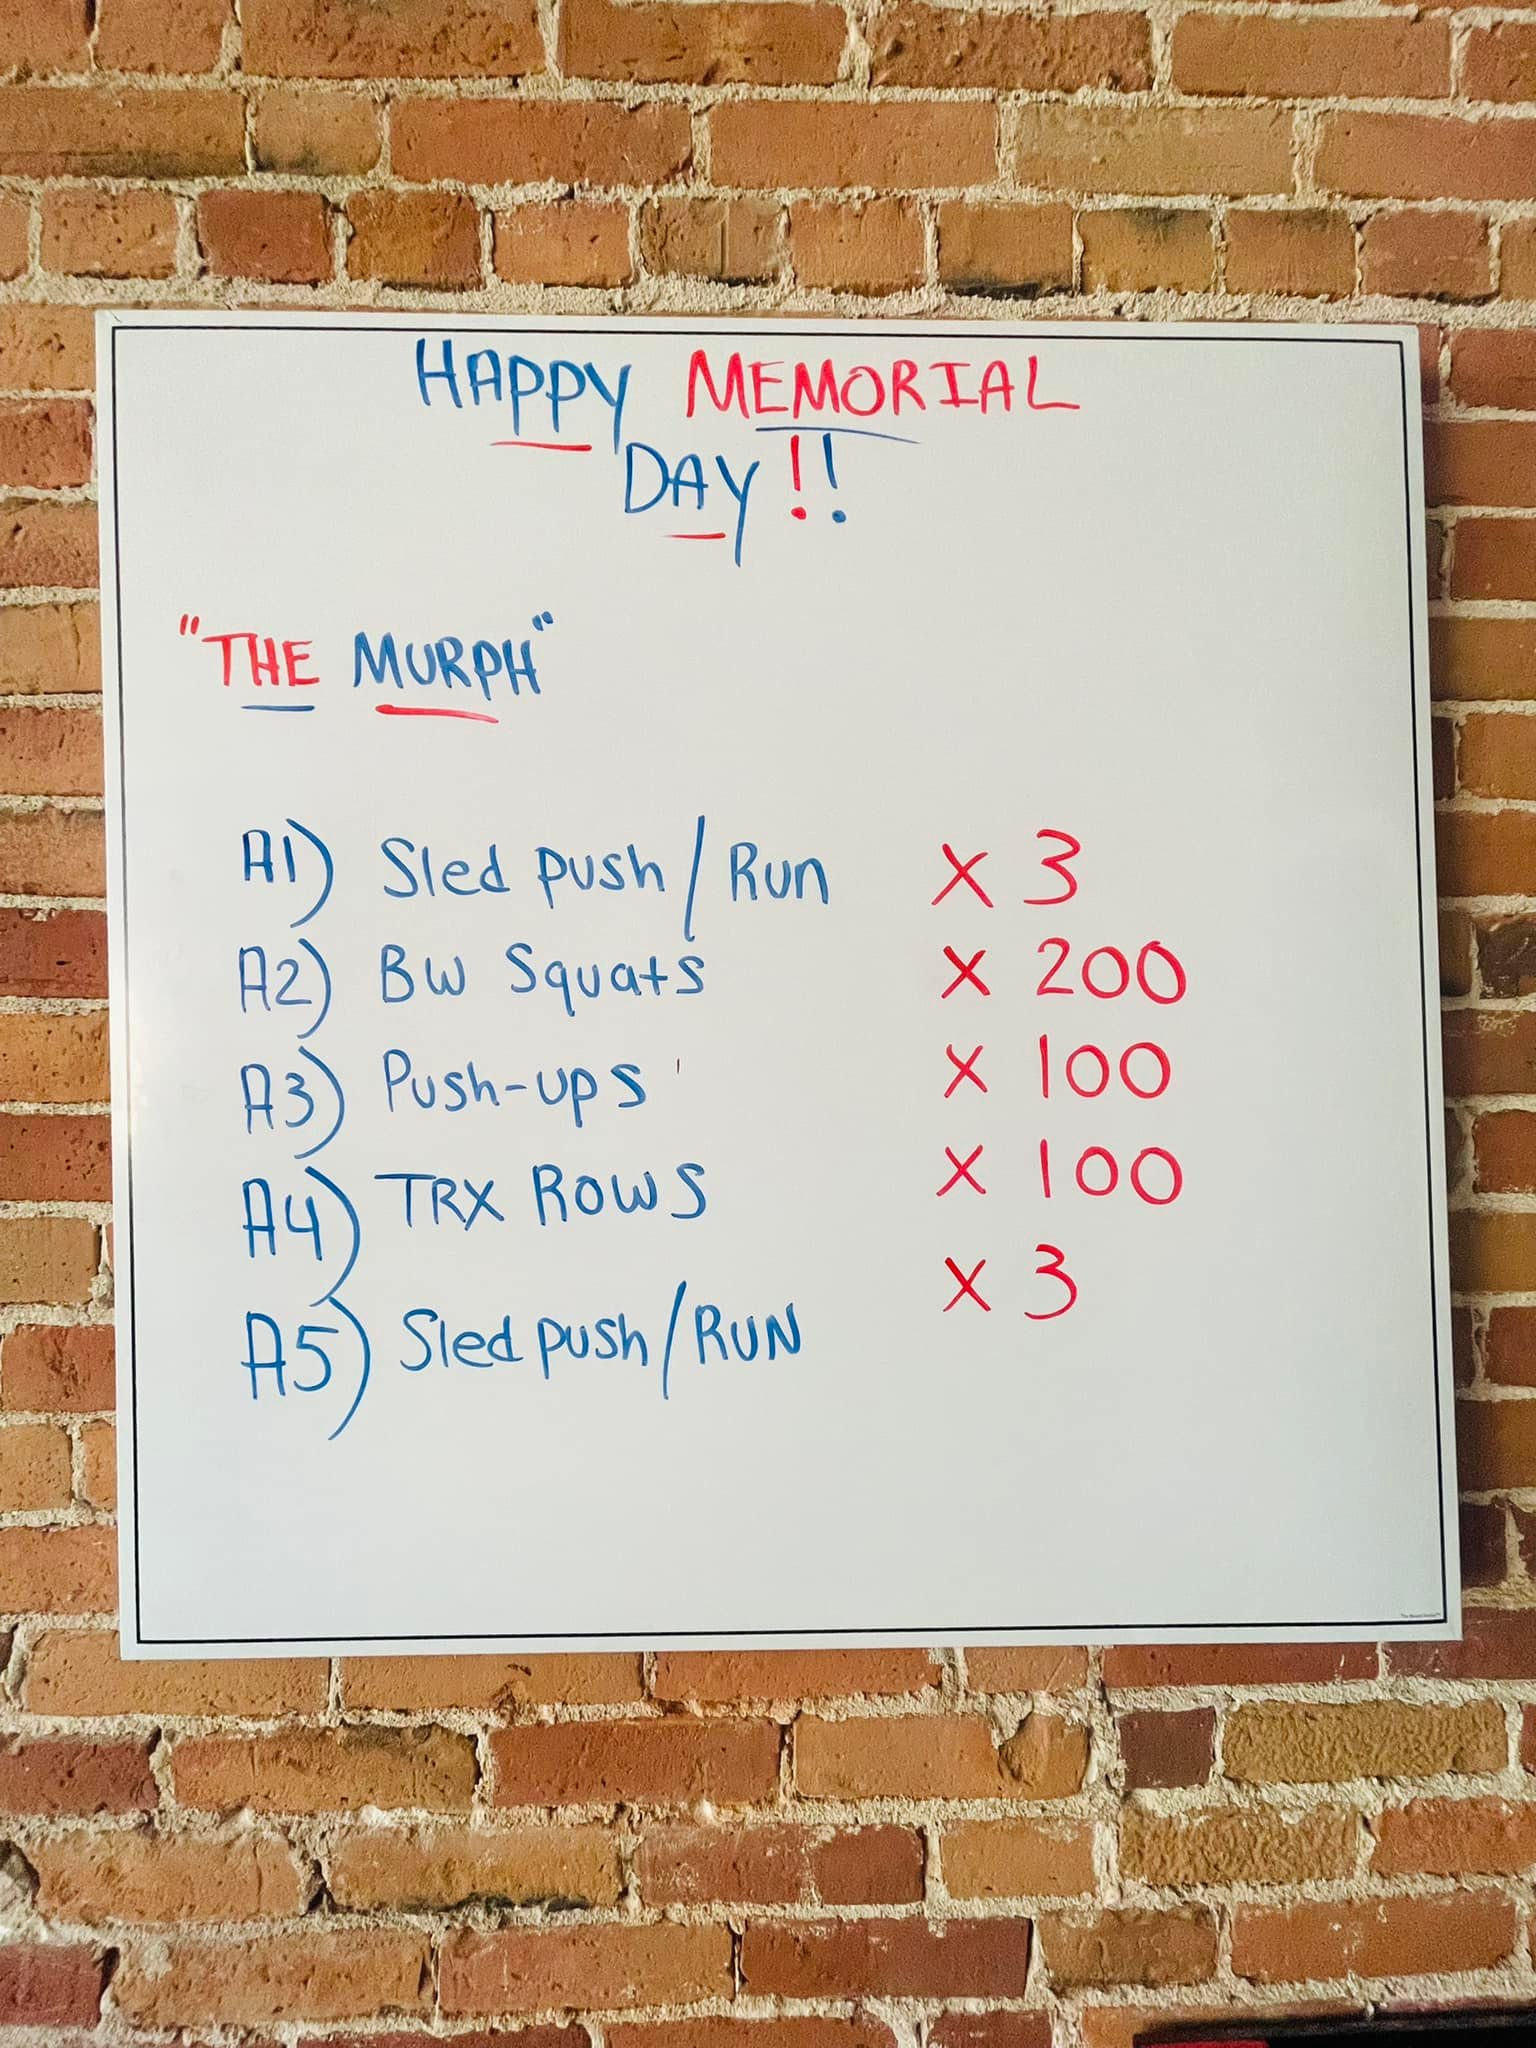 HAPPY MEMORIAL
DAY!!
"THE MURPH"
A1) Sled push/Run x 3
A2) BW Squats x 200
A3) Push-ups x 100
A4) TRX ROWS x 100
A5) Sled push/RUN x 3